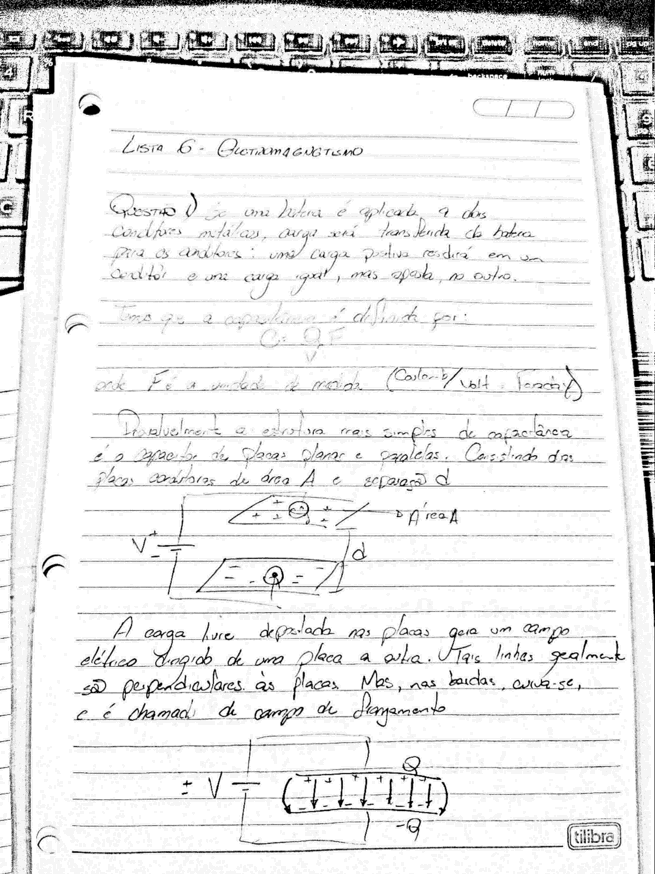 LISTA 6 - ELETROMAGNETISMO
QUESTÃO 1) Se uma bateria é aplicada a dois
condutores metálicos, carga será transferida da bateria
para os condutores: uma carga positiva residirá em um
condutor e uma carga igual, mas oposta, no outro.
Temos que a capacitância é definida por:
C = Q F
V
onde F é a unidade de medida (Coulomb/Volt = Faraday)
Provavelmente a estrutura mais simples de capacitância
é o capacitor de placas planas e paralelas. Consistindo das
placas condutoras de área A e separação d
+ + + + +
Área A
V + -
d
- - - -
A carga livre depositada nas placas gera um campo
elétrico dirigido de uma placa a outra. Tais linhas geralmente
são perpendiculares às placas. Mas, nas bordas, curva-se,
e é chamado de campo de franjamento
Q
± V
+ + + + + +
- - - - - -
-Q
tilibra